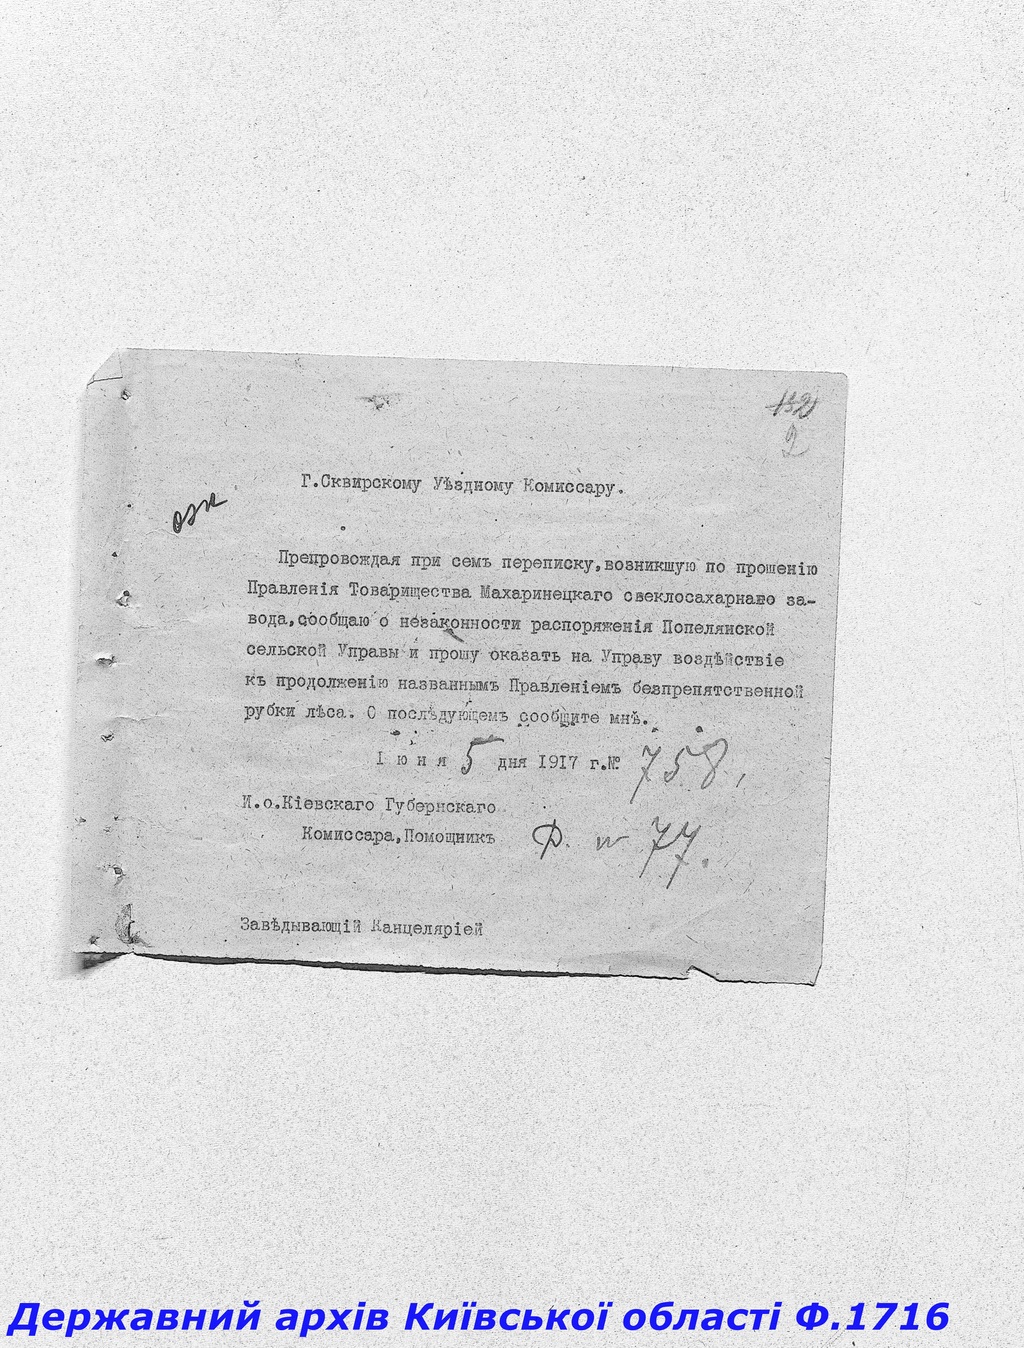 132
2
Г.Сквирскому Уѣздному Комиссару.
Препровождая при семъ переписку,возникшую по прошенію
Правленія Товарищества Махаринецкаго свеклосахарнаво за-
вода,сообщаю о незаконности распоряженія Попелянской
сельской Управы и прошу оказать на Управу воздѣйствіе
къ продолженію названнымъ Правленіемъ безпрепятственной
рубки лѣса. О послѣдующемъ сообщите мнѣ.
Іюня 5 дня 1917 г.№ 758.
И.о.Кіевскаго Губернскаго
Комиссара,Помощникъ
Ф. № 77.
Завѣдывающій Канцеляріей
Державний архів Київської області Ф.1716